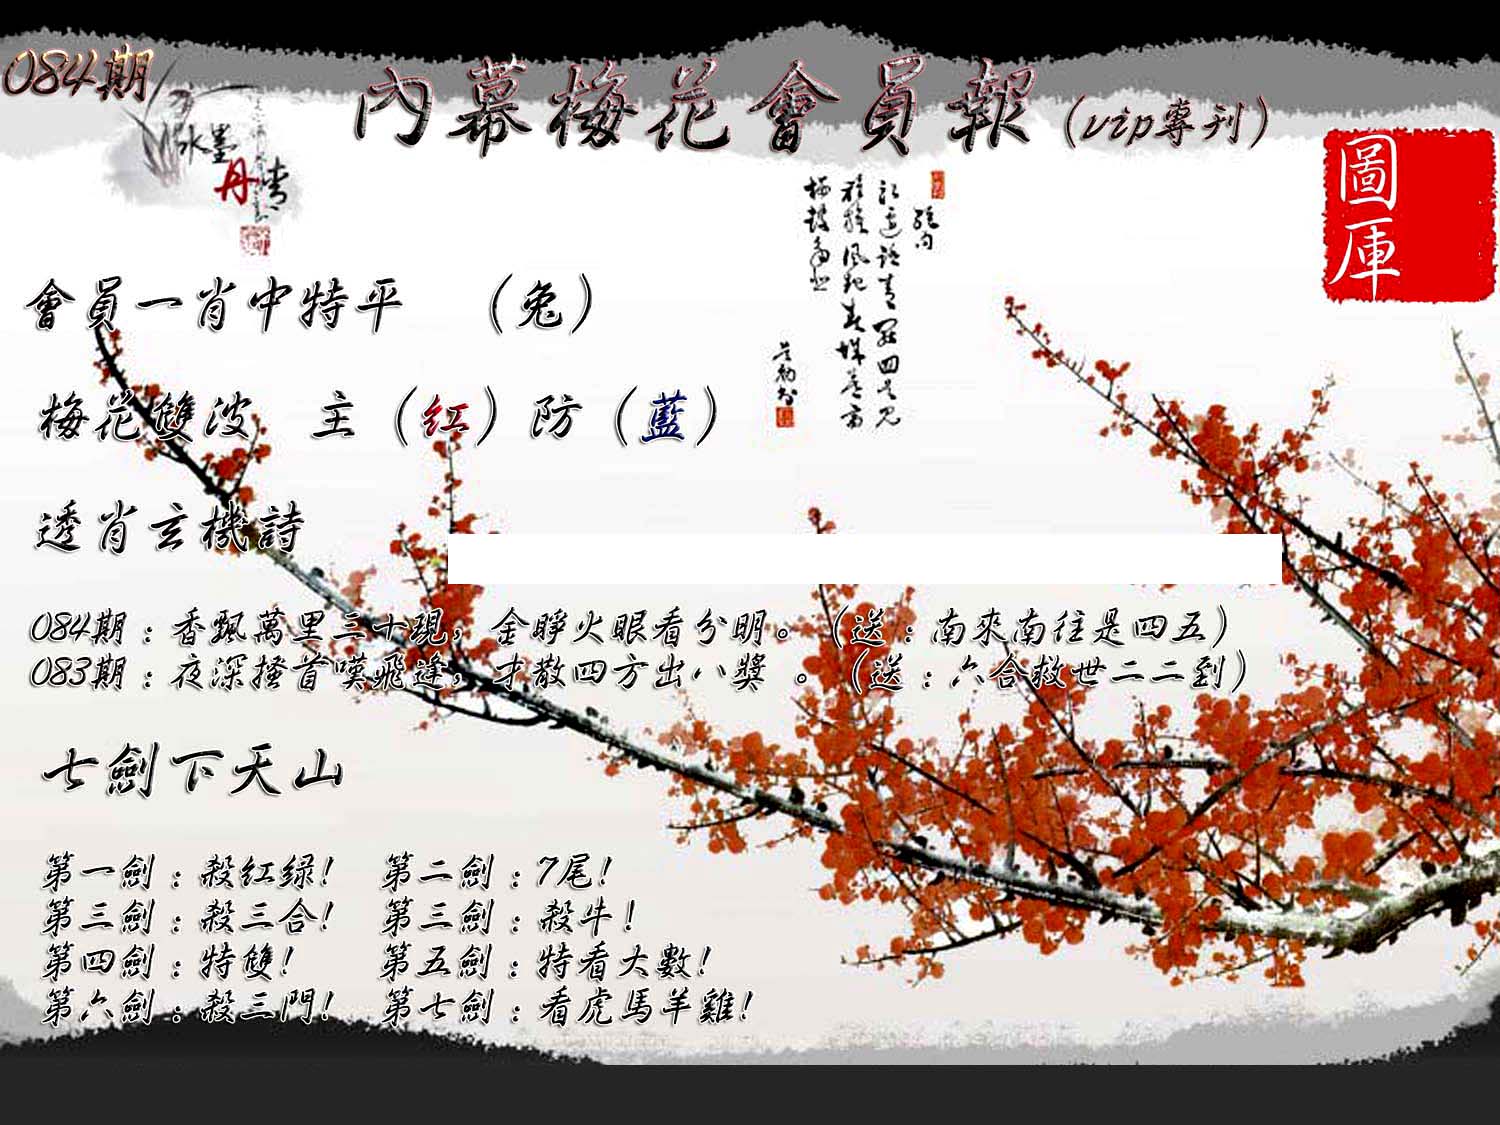 084期
內幕梅花會員報（vip專刊）
水墨
丹青
圖
庫
會員一肖中特平　（兔）
梅花雙波　主（紅）防（藍）
透肖玄機詩
084期：香飄萬里三十現，金睜火眼看分明。（送：南來南往是四五）
083期：夜深搔首嘆飛逢，才散四方出八獎 。（送：六合救世二二到）
七劍下天山
第一劍：殺紅绿!　第二劍：7尾!
第三劍：殺三合!　第三劍：殺牛!
第四劍：特雙!　第五劍：特看大數!
第六劍：殺三門!　第七劍：看虎馬羊雞!